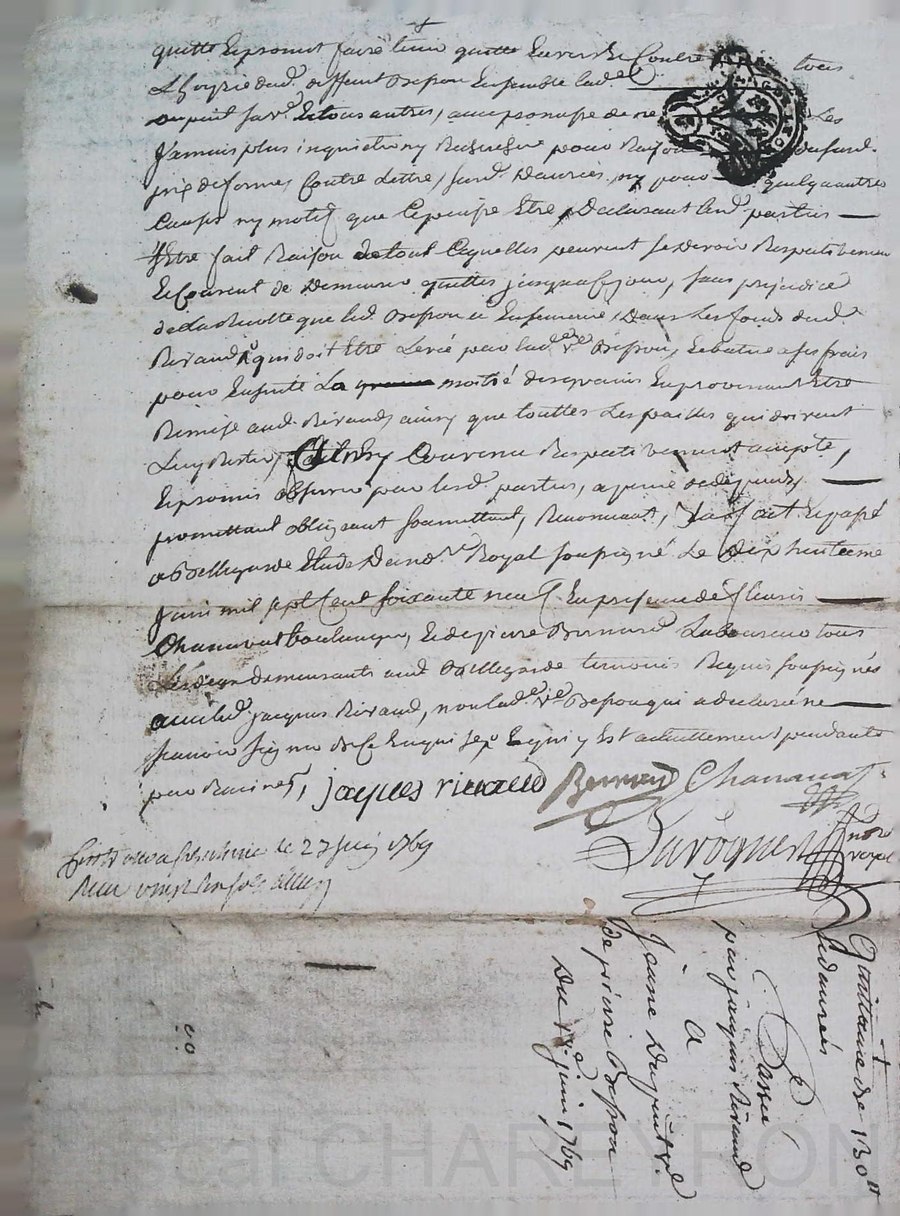 quitte et promet faire tenir quitte envers et Contre tous
L'hoyrie dud. deffunt Besson Ensemble lad.
Dupuit sa ve. Et tous autres, avec promesse de ne Les
Jamais plus inquietter ny Rechercher pour Raison dusud.
prix de ferme, Contre Lettre, sur d. Danrées, ny pour quelqu'autre
Cause ny motif que Ce puisse Etre, Declarant lesd. parties
s'Etre fait Raison de tout Ce qu'elles peuvent se devoir Respectivement
Et Consent de Demeurer quittes jusqu'a Ce jour, sans prejudice
de La Recolte que led. Besson a Ensemencé Dans Les fonds dud.
Rivaud, qui doit Etre Levée par lad. ve. Besson, Et batue a ses frais
pour Ensuite La moitié des grains En provenant Etre
Remise aud. Rivaud, ainsy que touttes Les pailles qui doivent
Luy Rester, Ainsy Convenu Respectivement accepté,
Et promis observer par lesd. parties, a peine de dépens,
promettant obligeant soumettant, Renonçant, Fait et passé
a Bellegarde Etude Dud. nre. Royal soussigné Le Dix huitieme
Juin mil sept Cent soixante neuf. En presence de fleuris
Chanavat boulanger, Et de pierre Bernard Laboureur tous
Les deux demeurants aud. Bellegarde temoins Requis soussignés
avec led. jacques Rivaud, non lad. ve. Besson qui a declaré ne
scavoir signer de Ce Enquise, Et qui y Est actuellement pendante
par Racines, jacques rivaud Bernard Chanavat
nore royal
Controllé a le 27 Juin 1769
Reçu vingt six sols
Quittance de 130 ll
Et danrées
Passée
par jacques Rivaud
A
Jeanne Dupuit ve.
de pierre Besson
Du 18e. juin 1769
cal CHAREYRON